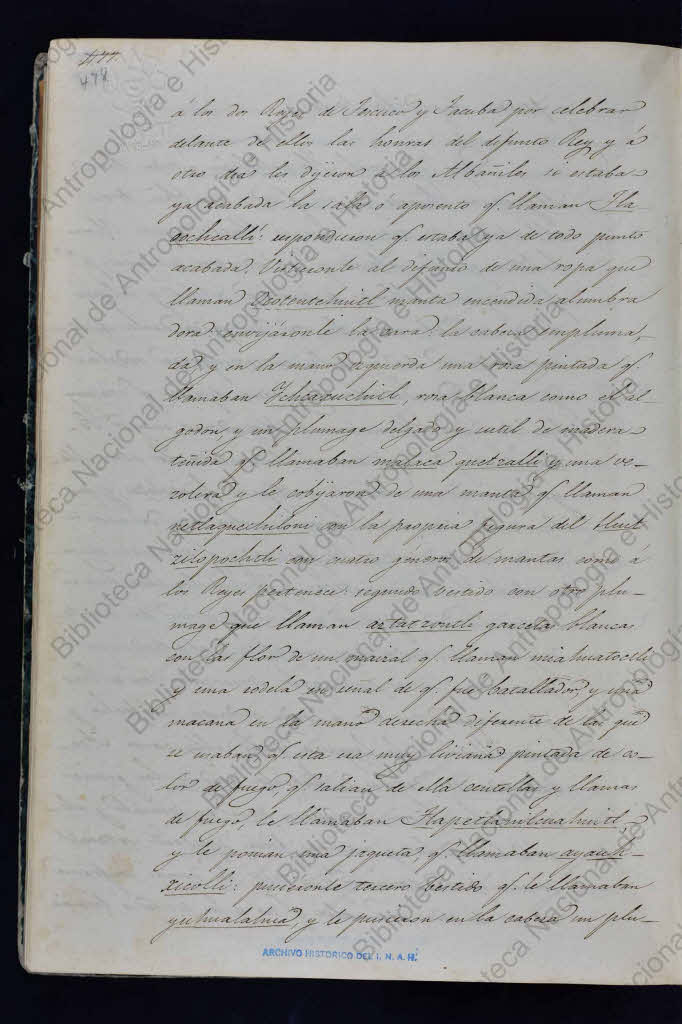 477.
478
á los dos Reyes de Tescuco y Tacuba por celebrar
delante de ellos las honras del difunto Rey, y á
otro dia les dijeron á los Albañiles si estaba
ya acabada la sala ó aposento q.e llaman Tla-
cochcalli: respondieron q.e estaba ya de todo punto
acabada. Vistieronle al difunto de una ropa que
llaman manta encendida alumbra
dora: la cara: la cabeza empluma-
da, y en la mano izquierda una rosa pintada q.e
llamaban Ychcaxuchitl, rosa blanca como el al-
godon, y un plumage delgado y sutil de madera
teñida q.e llamaban malaca quetzalli y una ve-
solera y le cobijaron de una manta q.e llaman
netlaquechiloni con la propria figura del Huit-
zilopochtli con cuatro generos de mantas como á
los Reyes pertenece: segundo vestido con otro plu-
mage que llaman aztatzontli garcetas blancas
con las flor de un maizal q.e llaman miahuatoctli
y una rodela en señal de q.e fue batallador, y una
macana en la mano derecha diferente de las que
se usaban q.e esta era muy liviana pintada de co-
lor de fuego, q.e salian de ella centellas y llamas
de fuego, le llamaban Tlapetlanilcuahuitl,
y le ponian una jaqueta q.e llamaban ayauh-
xicolli: pusieronle tercero vestido q.e le llamaban
yuhualahua, y le pusieron en la cabeza un plu-
ARCHIVO HISTORICO DEL I. N. A. H.
Biblioteca Nacional de Antropología e Historia